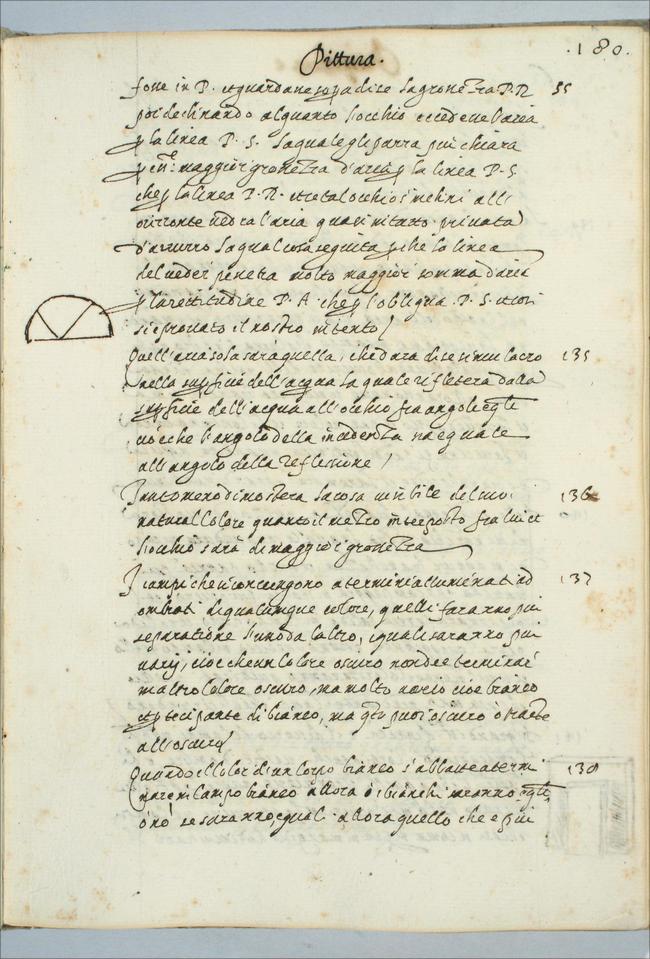 Pittura.
.180.
fosse in P. et guardane sopra di se la grossezza P. R 55
poi declinando alquanto l'occhio eccedeue l'aria
p la linea P. S. la quale gli parra piu chiara
p maggior grossezza d'aria p la linea P. S
che p la linea P. R. et se tal occhio s'inclini all
orizzonte uedra l'aria quasi in tutto priuata
d'azzurro la qual cosa seguita p che la linea
del ueder penetra molto maggior somma d'aria
p la rettitudine P. A. che p l'obliqua P. S. et cosi
si e prouato il nostro intento /
Quell'aria sola sarà quella, che darà di se simulacro 135
nella supficie dell'acqua la quale refletterà dalla
supficie dell'acqua all'occhio fra angoli eguli
cioè che l'angolo della incidenza sia eguale
all'angolo della reflessione /
Tanto meno dimostera la cosa uisibile del suo 136
natural colore quanto il mezzo interposto fra lui et
l'occhio sarà di maggior grossezza
I campi che si conuengono a termini alluminati ad 137
ombrati di qualunque colore, quelli faranno piu
separatione l'uno da l'altro, i quali saranno piu
uarij, cioè che un colore oscuro non dee terminare
in altro colore oscuro, ma molto uario cioè bianco
et ptecipante di bianco, ma qto puoi oscuro ò traente
all'oscuro
Quando il color d'un corpo bianco s'abbatte a termi 138
nare in campo bianco allora ò i bianchi saranno eguli
ò nò se saranno eguali allora quello che e piu